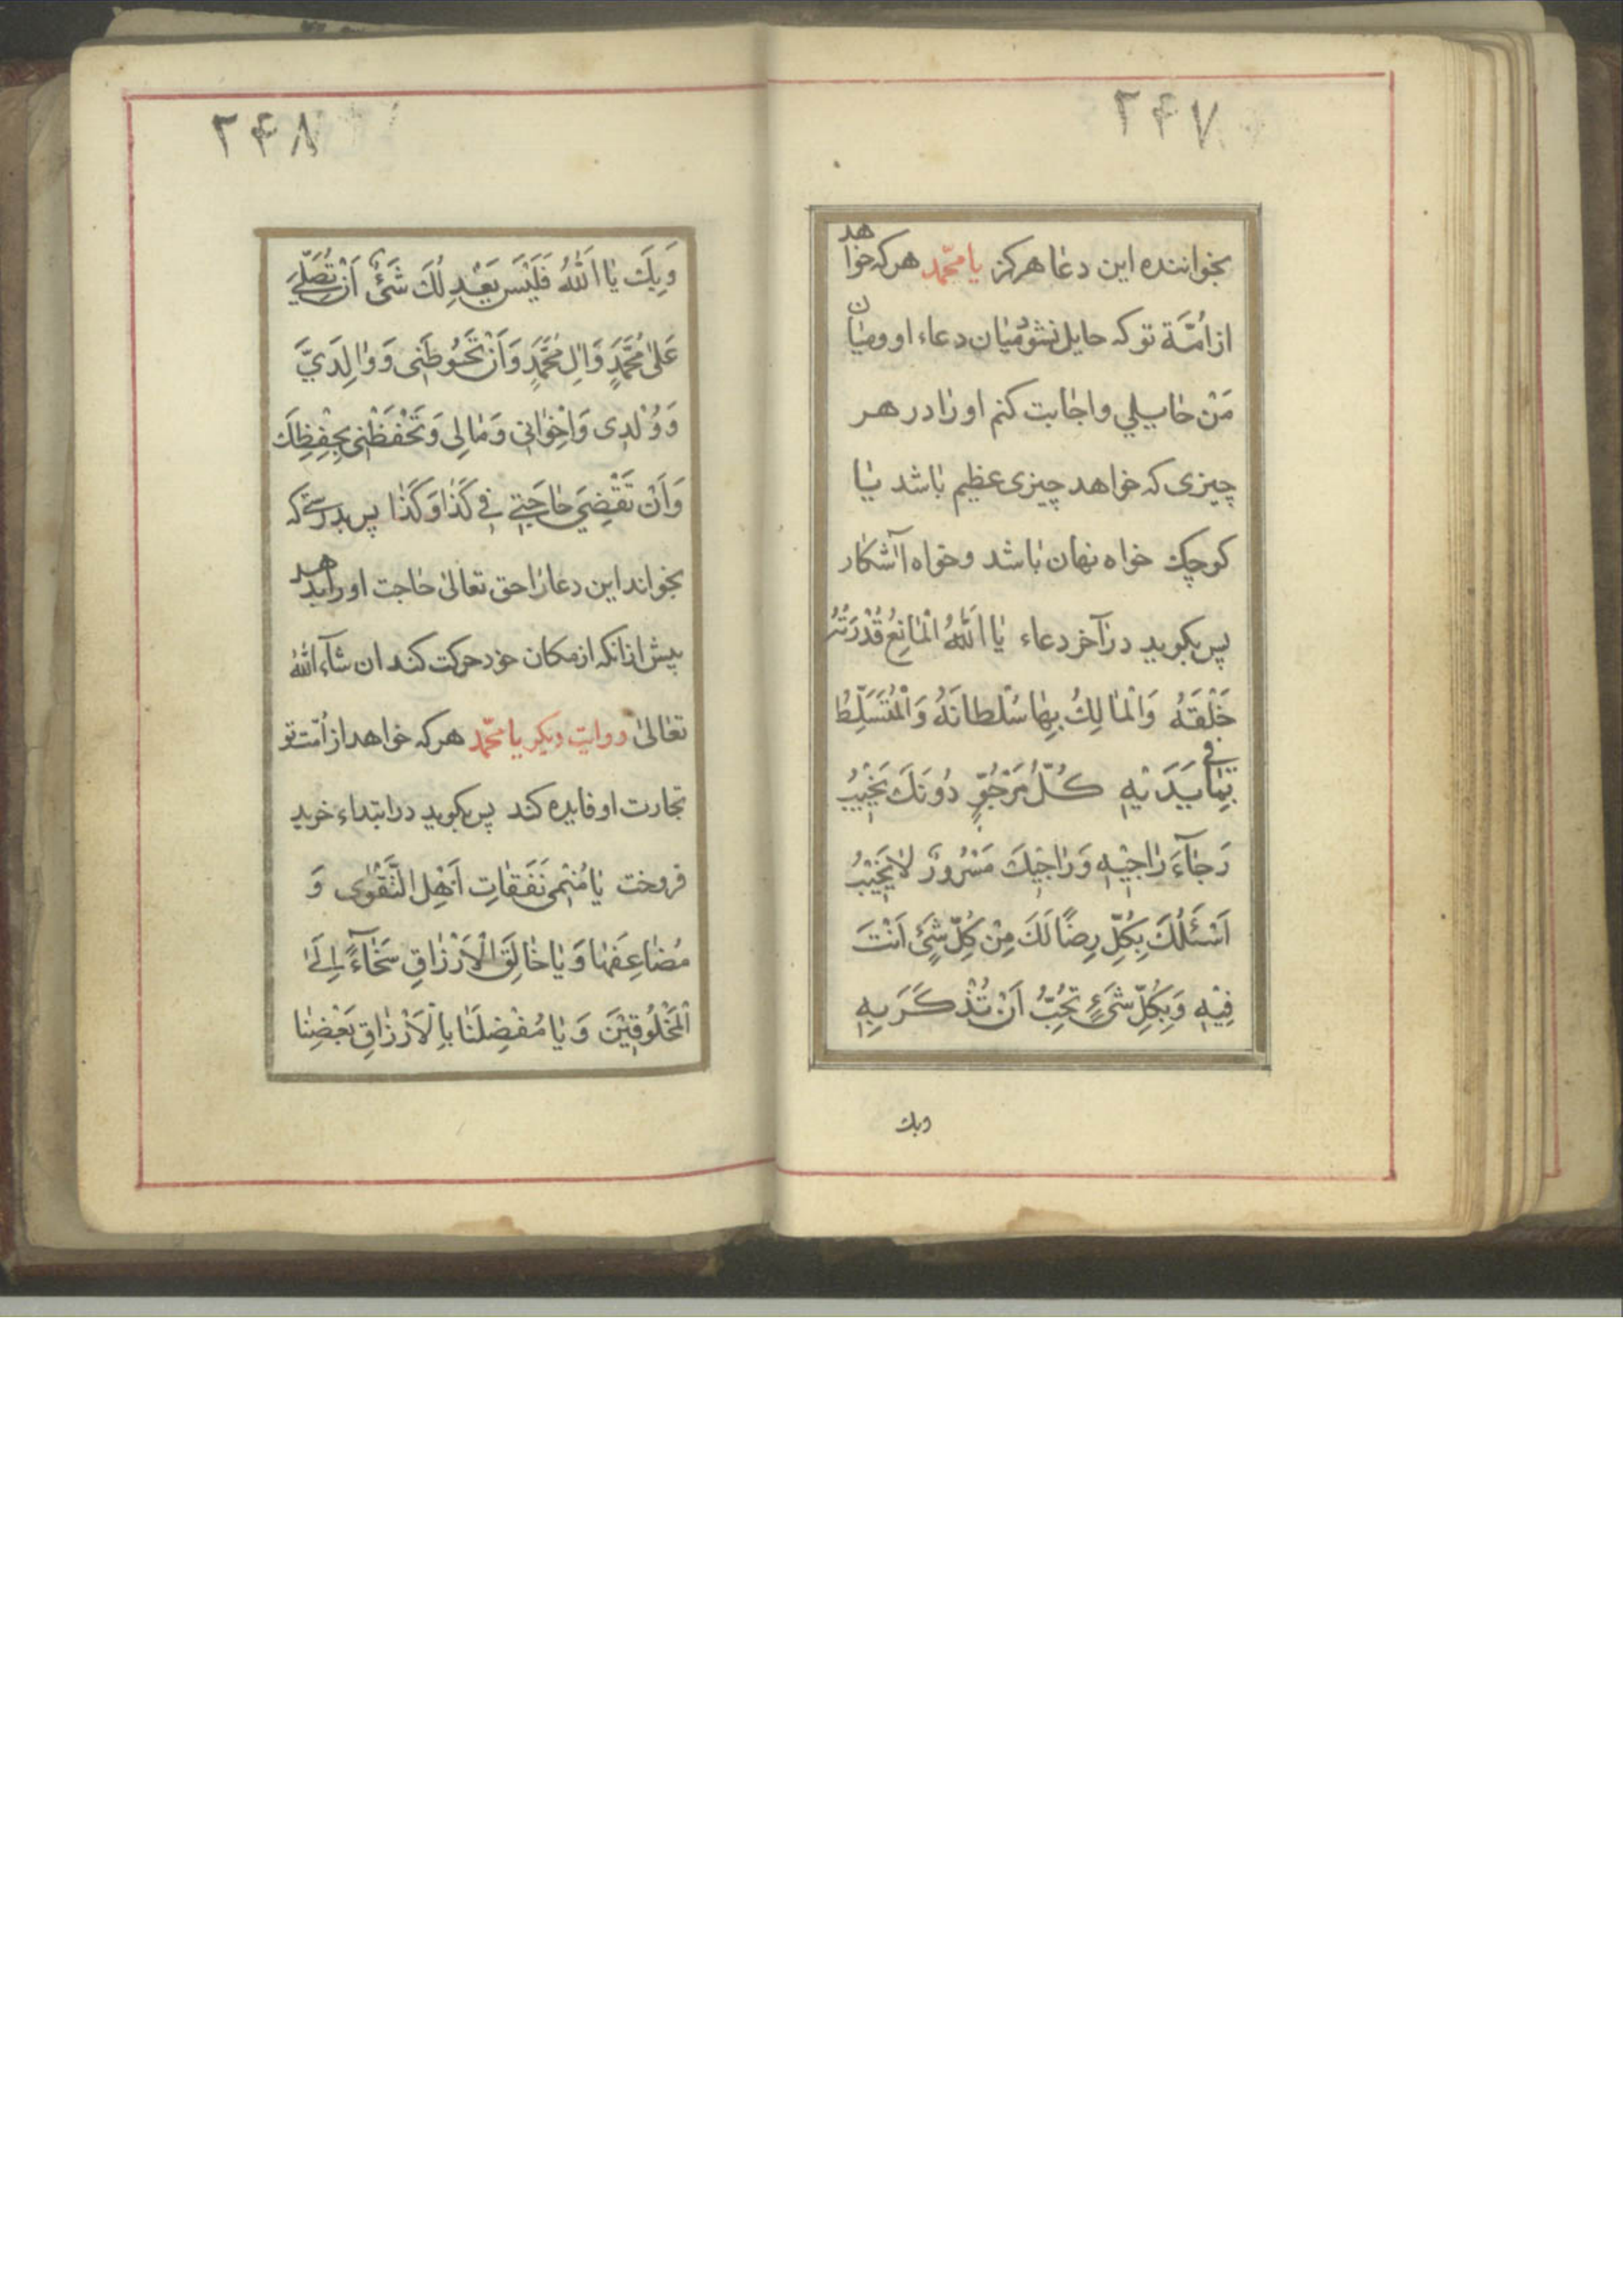 ۲۴۷
بخواننده این دعا هرکز یا محمّد هرکه خواهد
از امّة تو که حایل نشود میان دعاء او و میان
مَنْ حایلی و اجابت کنم او را در هر
چیزی که خواهد چیزی عظیم باشد یا
کوچک خواه نهان باشد و خواه آشکار
پس بکوید در آخر دعاء یا اَللّٰهُ الْمانِعُ قُدْرَتُهُ
خَلْقَهُ وَالْمالِكُ بِها سُلْطانَهُ وَالْمُتَسَلِّطُ
بِما فی یَدَیْهِ کُلُّ مَرْجُوٍّ دُونَكَ یَخیبُ
رَجآءَ راجیْهِ وَ راجیْكَ مَسْرُورٌ لا یَخیْبُ
اَسْئَلُكَ بِکُلِّ رِضًا لَكَ مِنْ کُلِّ شَیْءٍ اَنْتَ
فِیْهِ وَبِکُلِّ شَیْءٍ تُحِبُّ اَنْ تُذْکَرَ بِهِ
وبك
۲۴۸
وَبِكَ یا اَللّٰهُ فَلَیْسَ یَعْدِلُكَ شَیْءٌ اَنْ تُصَلِّیَ
عَلیٰ مُحَمَّدٍ وَ اٰلِ مُحَمَّدٍ وَ اَنْ تَحُوطَنی وَ والِدَیَّ
وَ وُلْدی وَ اِخْوانی وَ مالی وَ تَحْفَظَنی بِحِفْظِكَ
وَ اَنْ تَقْضِیَ حاجَتی فی کَذا وَ کَذا پس بدرستی که
بخواند این دعا را حق تعالیٰ حاجت او را بدهد
پیش از انکه از مکان خود حرکت کند ان شآء اللّٰهُ
تعالیٰ روایت دیکر یا محمّد هرکه خواهد از امّت تو
تجارت او فایده کند پس بکوید در ابتداء خرید
فروخت یا مُنْمی نَفَقاتِ اَهْلِ التَّقْوٰی وَ
مُضاعِفَها وَ یا خالِقَ الْاَرْزاقِ سَخآءً اِلَی
الْمَخْلُوقیْنَ وَ یا مُفْضِلَنا بِالْاَرْزاقِ بَعْضِنا